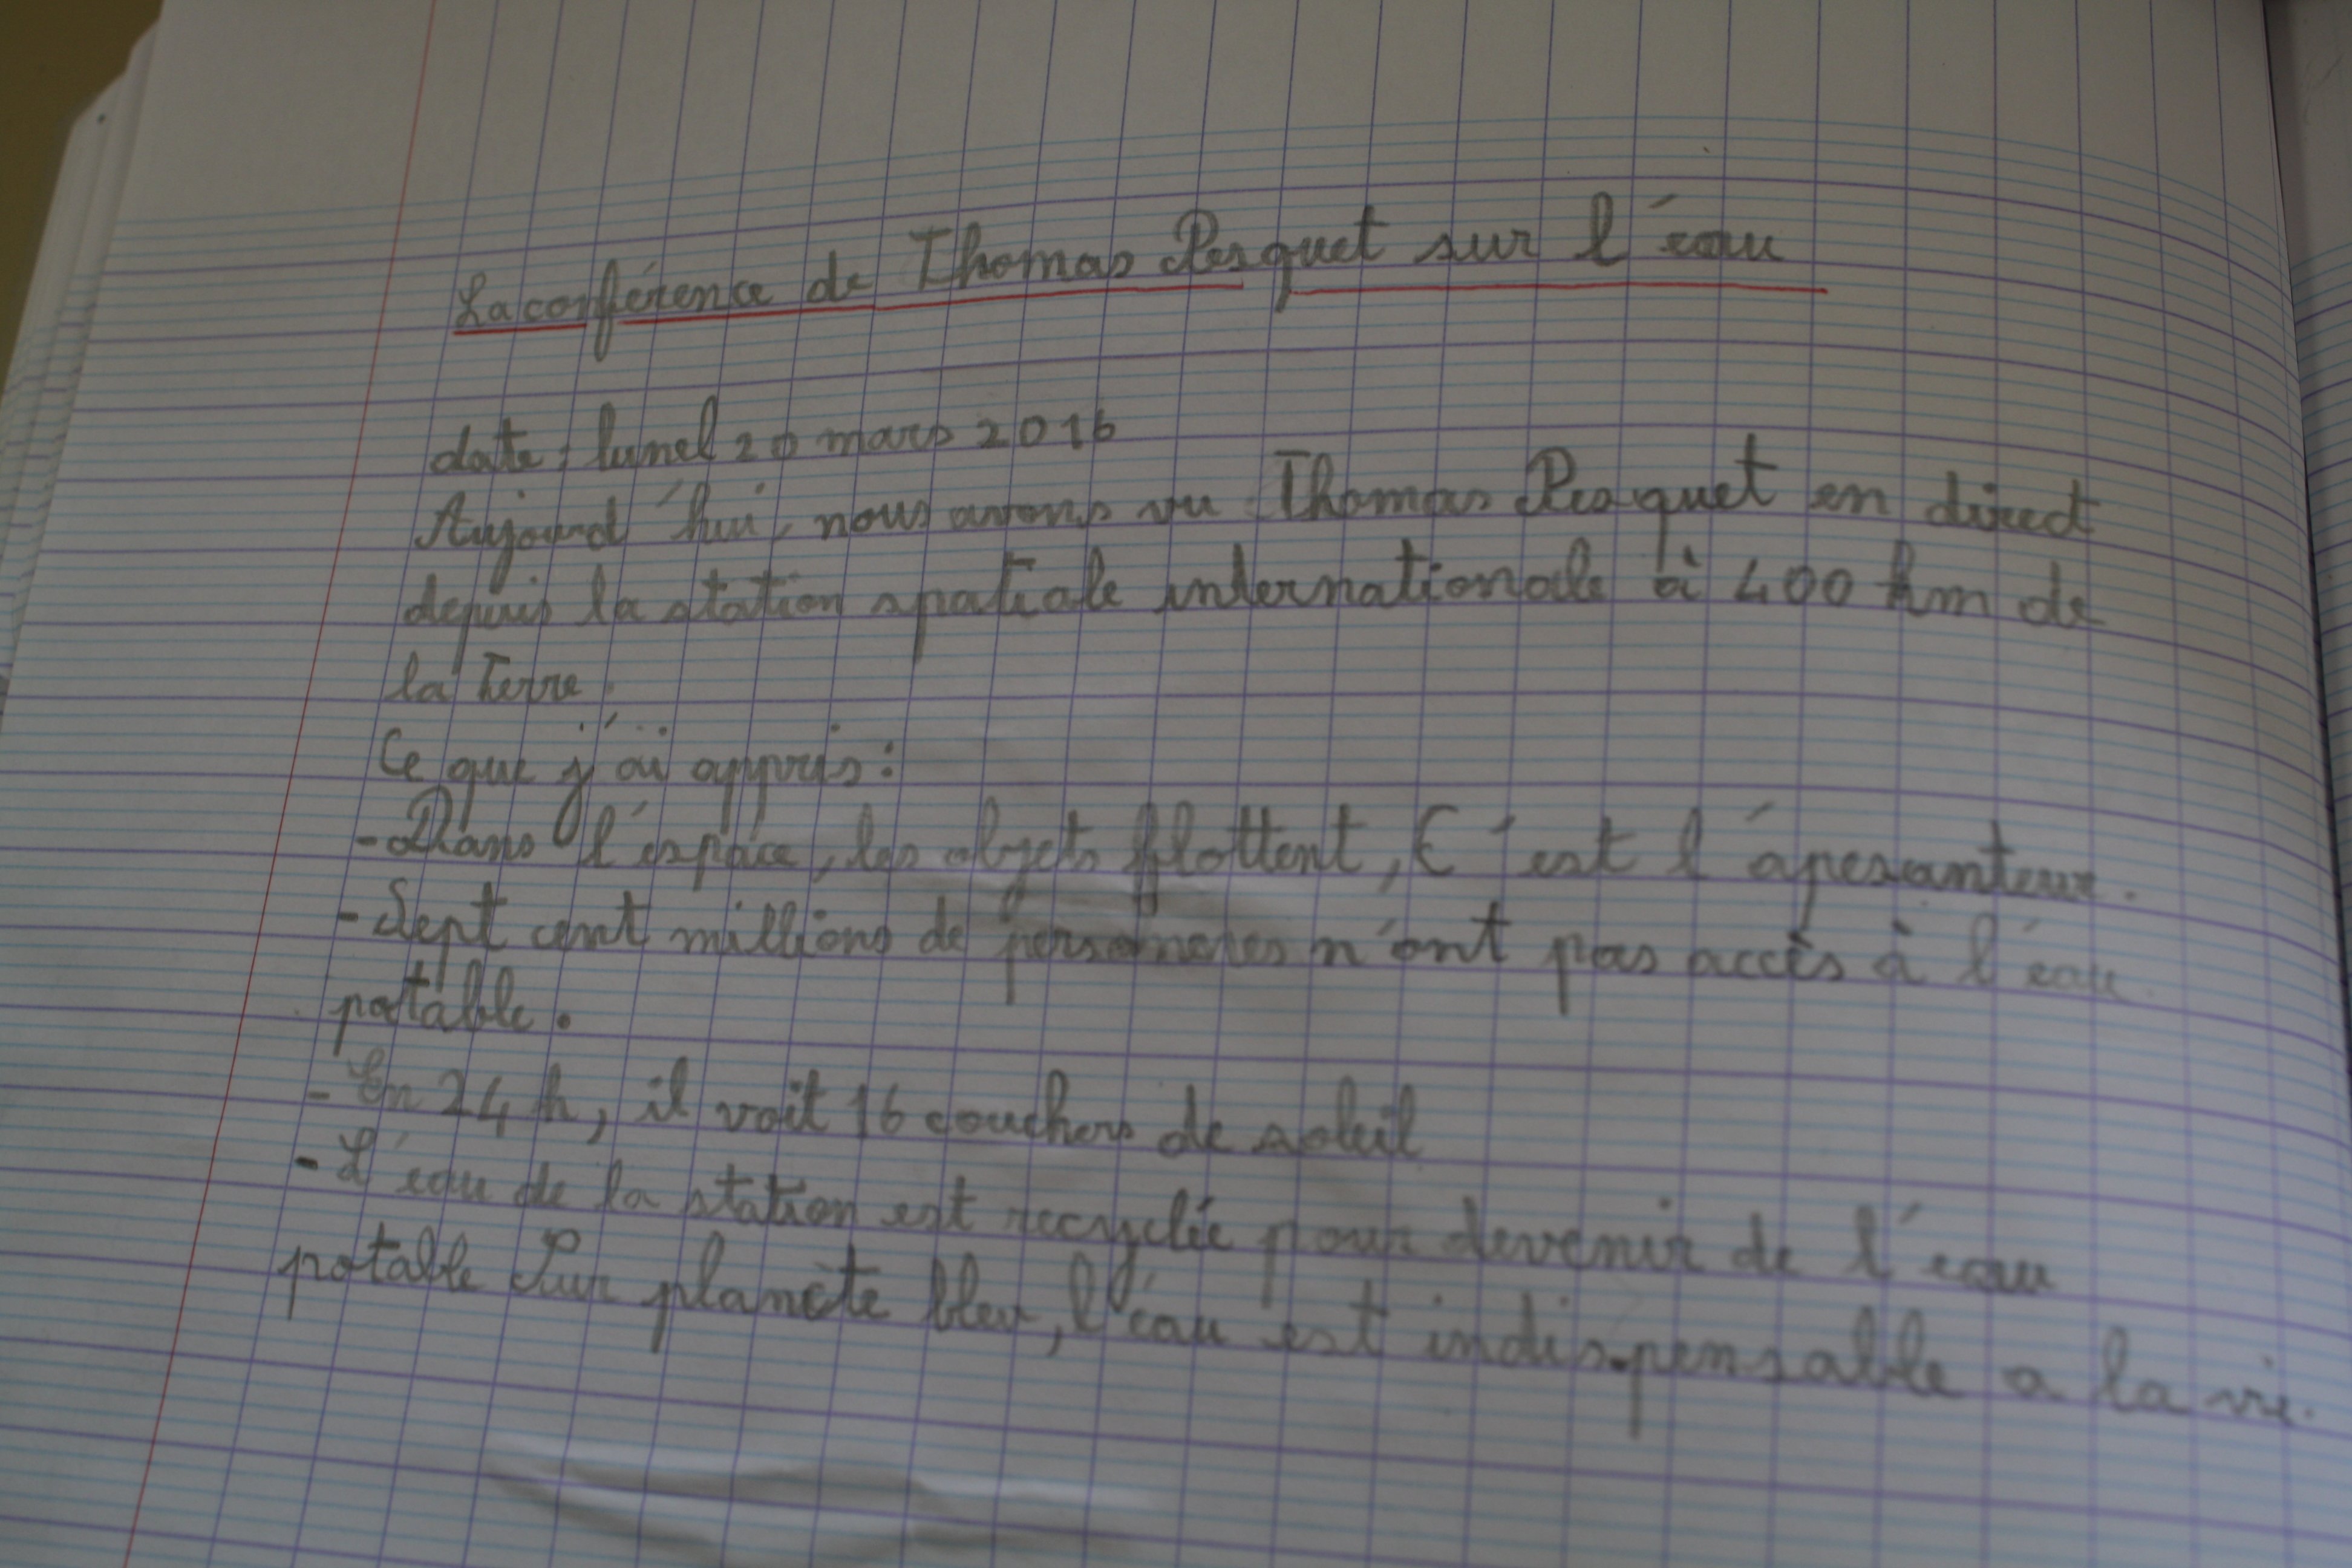 La conférence de Thomas Pesquet sur l'eau
date : lunel 20 mars 2016
Aujourd'hui, nous avons vu Thomas Pesquet en direct
depuis la station spatiale internationale à 400 km de
la Terre.
Ce que j'ai appris :
- Dans l'espace, les objets flottent, C'est l'apesanteur.
- Sept cent millions de personnes n'ont pas accès à l'eau
potable.
- En 24 h, il voit 16 couchers de soleil
- L'eau de la station est recyclée pour devenir de l'eau
potable Sur planète bleu, l'eau est indispensable a la vie.